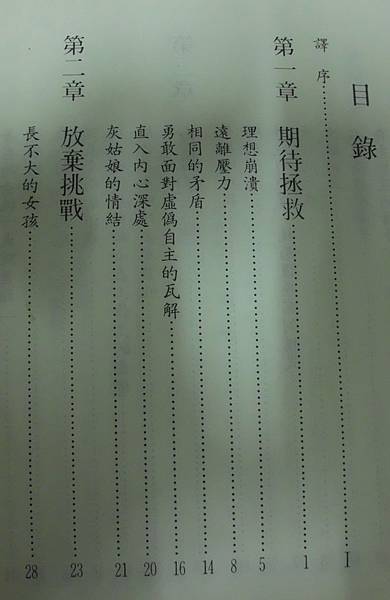 目錄
譯序……I
第一章 期待拯救……1
理想崩潰……5
遠離壓力……8
相同的矛盾……14
勇敢面對虛偽自主的瓦解……16
直入內心深處……20
灰姑娘的情結……21
第二章 放棄挑戰……23
長不大的女孩……28